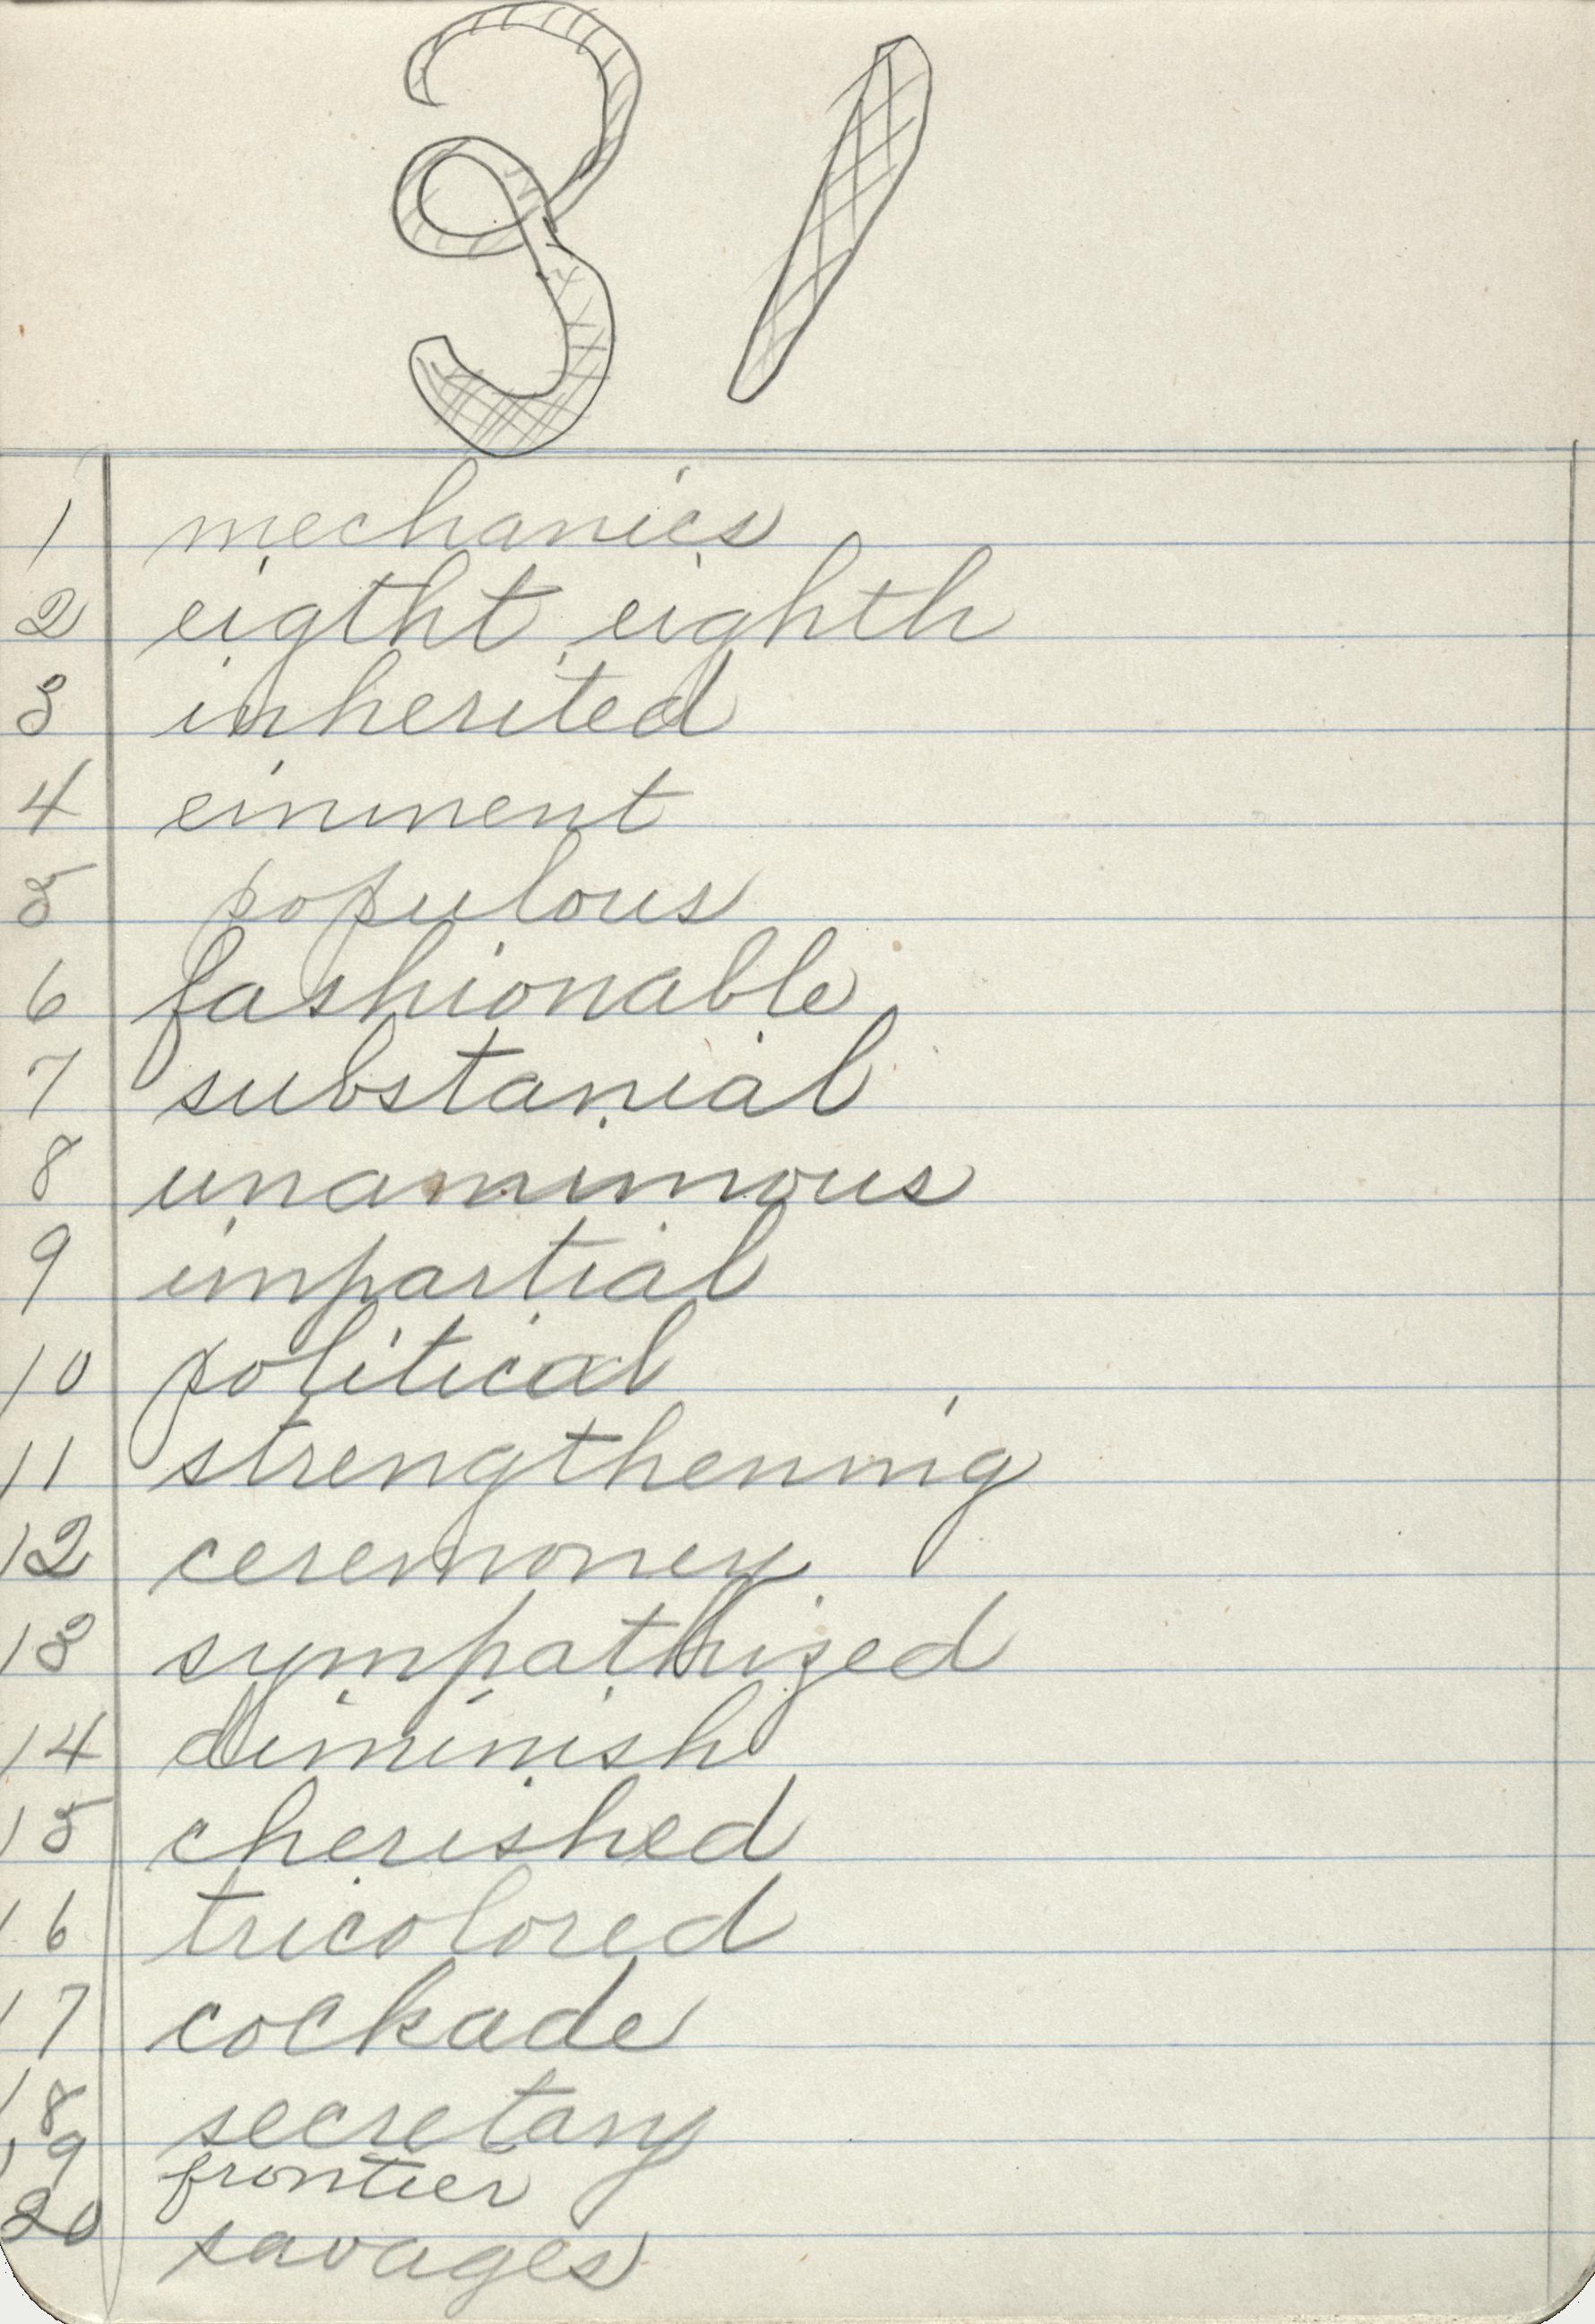 31
1 mechanics
2 eigtht eighth
3 inherited
4 einment
5 populous
6 fashionable
7 substanial
8 unanimous
9 impartial
10 political
11 strengthening
12 ceremoney
13 sympathized
14 diminish
15 cherished
16 tricolored
17 cockade
18 secretary
19 frontier
20 savages